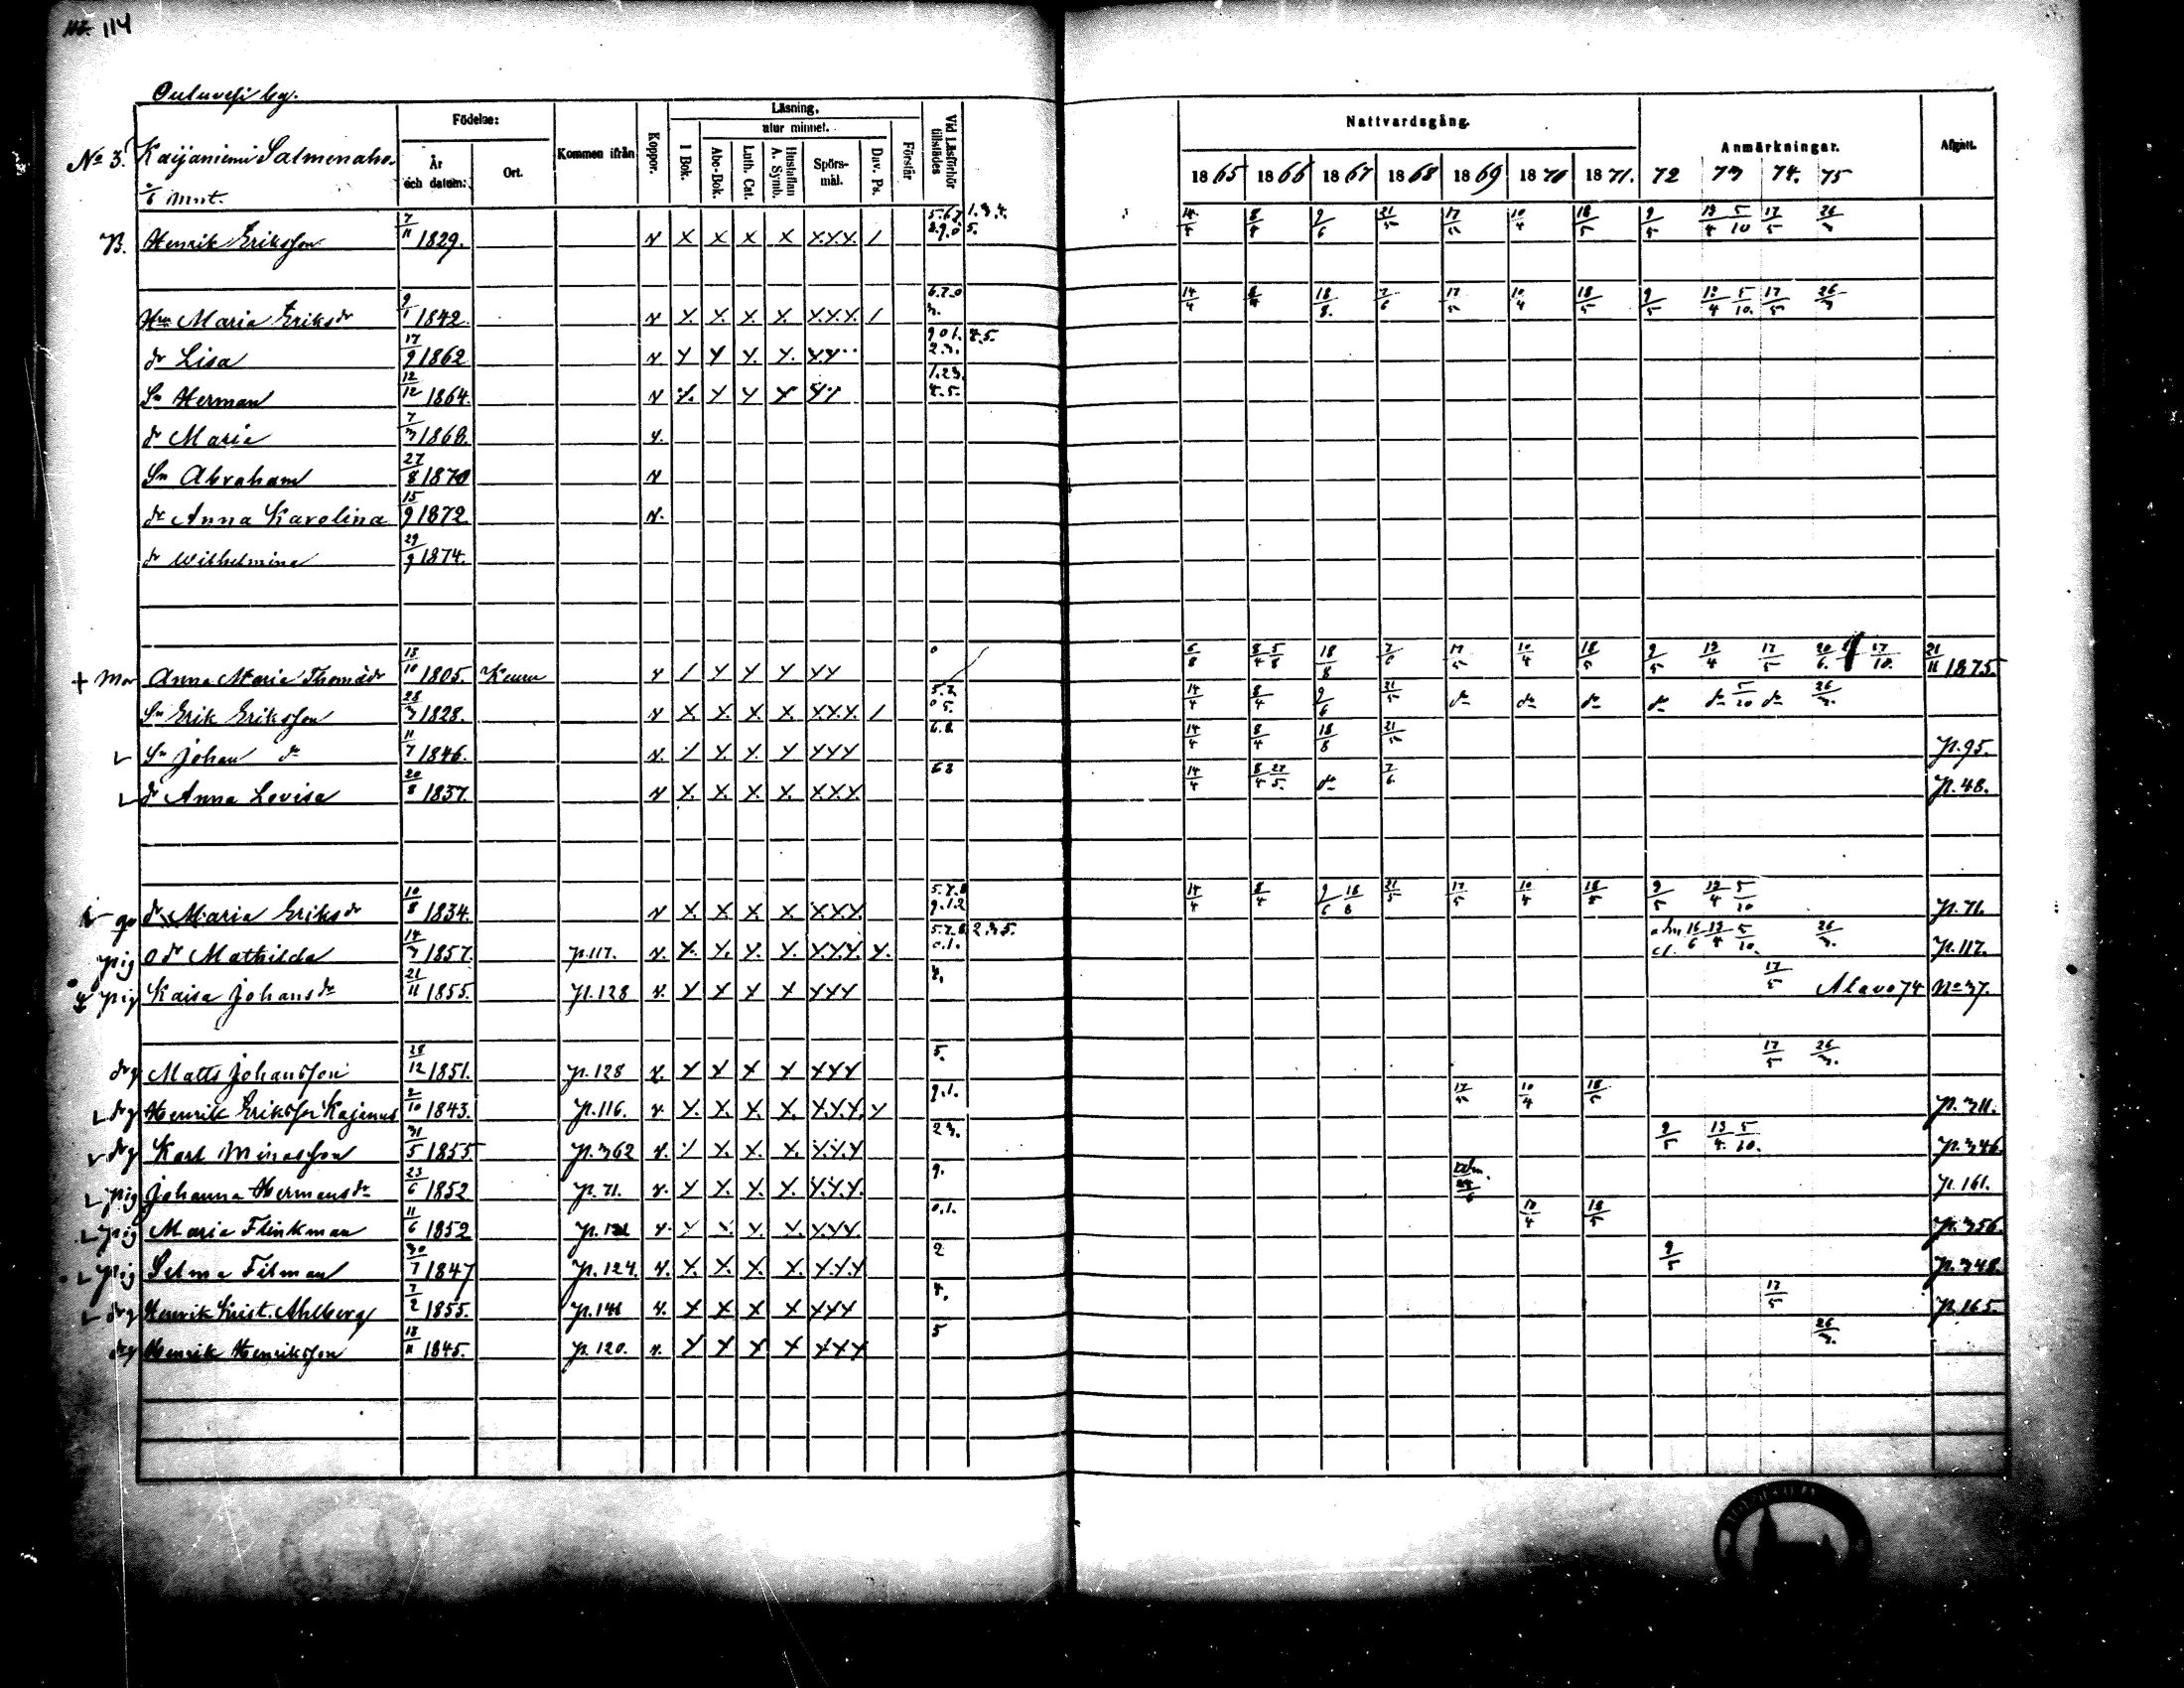 114
Ouluvesi by.
Födelse: Läsning.
utur minnet.
Nattvardsgång. Anmärkningar. Afgått.
No 3. Kaijaniemi Salmenaho.
År och datum: Ort. Kommen ifrån Koppor. I Bok. Abc-Bok. Luth. Cat. Hustaflan A. Symb. Spörsmål. Dav. Ps. Förstår Vid Läsförhör tillstädes
1865 1866 1867 1868 1869 1870 1871. 72 73 74. 75
Mnt.
B. Henrik Eriksson 7/11 1829. v X X X X X.X.X. / 5.6.7. 8.9.0 1.3.4. 5. 14/4 8/4 9/6 21/5 17/5 10/4 18/5 9/5 13/4 5/10 17/5 26/3
Hru Maria Eriksdr 9/1 1842. v X. X. X. X. X.X.X. / 6.7.0 3. 14/4 8/4 18/8. 7/6 17/5 10/4 18/5 9/5 13/4 5/10. 17/5 26/3
dr Lisa 17/9 1862 v. 9 0 1. 2.3. 4.5.
Sn Herman 12/12 1864. v 1.2 3. 4.5.
dr Maria 7/3 1868. v.
Sn Abraham 27/8 1870 v
dr Anna Karolina 15/9 1872. v.
dr Wilhelmina 29/9 1874.
+ Mor Anna Maria Thomædr 13/10 1805. Keuru v 0 6/8 8/4 5/8 18/8 7/6 17/5 10/4 18/5 9/5 13/4 17/5 20/6. 17/10. 21/11 1875.
Sn Erik Eriksson 28/3 1828. v X. X. X. X. X.X.X. / 5.7. 0 5. 14/4 8/4 9/6 21/5 do do do do do 5/10 do 26/3.
Sn Johan do 11/7 1846. v. 6.8. 14/4 8/4 18/8 21/5 p. 95.
dr Anna Lovisa 20/8 1837. v X. X. X. X. X.X.X. 6 8 14/4 8/4 27/5. do 7/6. p. 48.
dr Maria Eriksdr 10/8 1834. v X. X. X. X. X.X.X. 5.7.8 9.1.2 14/4 8/4 9/6 18/8 21/5 17/5 10/4 18/5 9/5 13/4 5/10 p. 71.
pig dr Mathilda 14/3 1857. p. 117. v. 5.7.8. 0.1. 2.3 5. adm 16/6 13/4 5/10. 26/3. p. 117.
pig Kaisa Johansdr 21/11 1855. p. 128 v. 4. 17/5 Alavo 74 No 37.
drg Matts Johansson 28/12 1851. p. 128 v. 5. 17/5 26/3.
drg Henrik Eriksson Kajanus 2/10 1843. p. 116. v. 9.1. 17/5 10/4 18/5 p. 311.
drg Karl Minasson 31/5 1855 p. 362 v. 2 3. 9/5 13/4. 5/10. p. 346.
pig Johanna Hermansdr 23/6 1852. p. 71. v. 9. adm. 24/6 p. 161.
pig Maria Flinkman 11/6 1852 v. 0.1. 10/4 18/5 p. 356.
pig Selma Filman 30/7 1847 p. 124. v. 2 9/5 p. 348.
drg Henrik Krist. Ahlberg 7/2 1855. p. 141 v. 4. 17/5 p. 165.
drg Henrik Henriksson 18/11 1845. p. 120. v. 5 26/3.